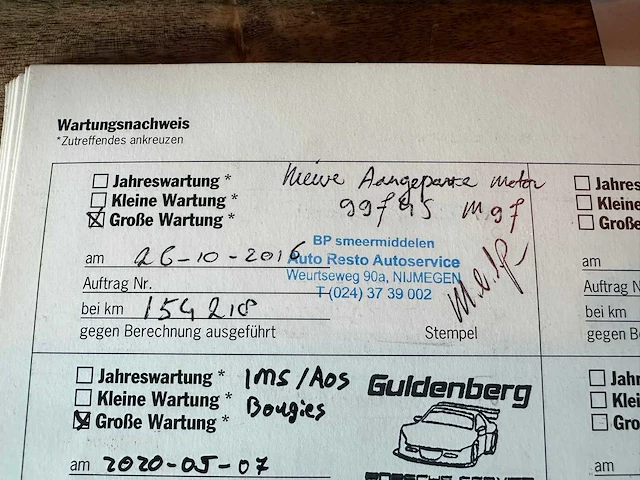 Wartungsnachweis
*Zutreffendes ankreuzen
Jahreswartung *
Kleine Wartung *
Große Wartung *
Nieuwe Aangepaste motor
am 26-10-2016
BP smeermiddelen
Auto Resto Autoservice
Weurtseweg 90a, NIJMEGEN
T (024) 37 39 002
Auftrag Nr.
bei km 154 218
gegen Berechnung ausgeführt
Stempel
Jahreswartung * IMS/AOS
Kleine Wartung * Bougies
Große Wartung *
am 2020-05-07
Guldenberg
PORSCHE SERVICE
Jahres
Kleine
Große
am
Auftrag N
bei km
gegen B
Jahr
Klei
Gro
am